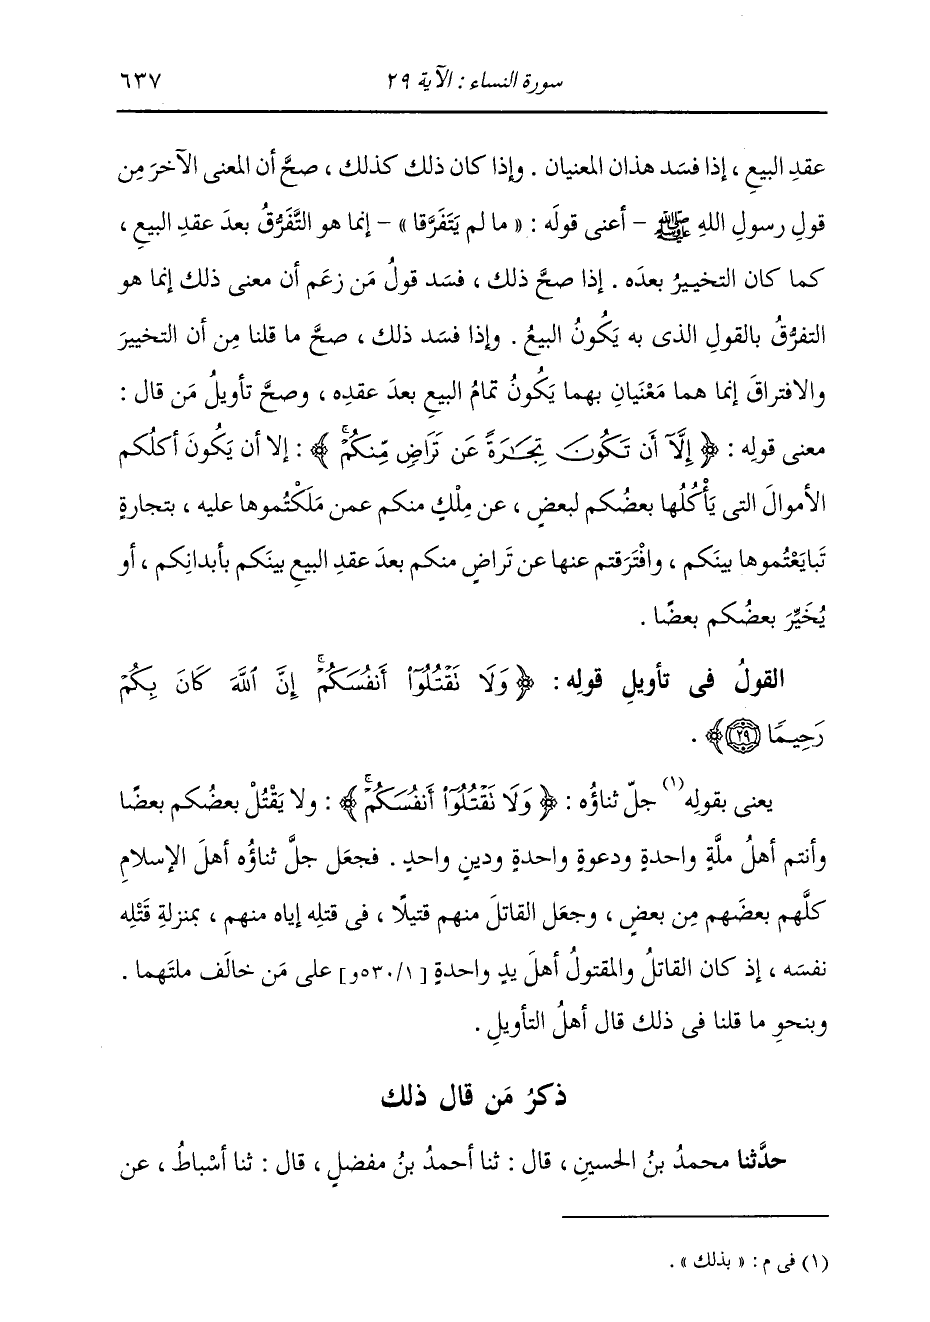 سورة النساء : الآية ٢٩ ٦٣٧
عقدِ البيعِ ، إذا فسَد هذان المعنيان . وإذا كان ذلك كذلك ، صحَّ أن المعنى الآخرَ مِن
قولِ رسولِ اللهِ ﷺ - أعنى قولَه : « ما لم يَتَفَرَّقا » - إنما هو التَّفَرُّقُ بعدَ عقدِ البيعِ ،
كما كان التخييرُ بعدَه . إذا صحَّ ذلك ، فسَد قولُ مَن زعَم أن معنى ذلك إنما هو
التفرُّقُ بالقولِ الذى به يَكُونُ البيعُ . وإذا فسَد ذلك ، صحَّ ما قلنا مِن أن التخييرَ
والافتراقَ إنما هما مَعْنَيانِ بهما يَكُونُ تمامُ البيعِ بعدَ عقدِه ، وصحَّ تأويلُ مَن قال :
معنى قولِه : ﴿ إِلَّآ أَن تَكُونَ تِجَـٰرَةً عَن تَرَاضٍ مِّنكُمْۚ ﴾ : إلا أن يَكُونَ أكلُكم
الأموالَ التى يَأْكُلُها بعضُكم لبعضٍ ، عن مِلْكٍ منكم عمن مَلَكْتُموها عليه ، بتجارةٍ
تَبايَعْتُموها بينَكم ، وافْتَرَقتم عنها عن تَراضٍ منكم بعدَ عقدِ البيعِ بينَكم بأبدانِكم ، أو
يُخَيِّرَ بعضُكم بعضًا .
القولُ فى تأويلِ قولِه : ﴿ وَلَا تَقْتُلُوٓا۟ أَنفُسَكُمْۚ إِنَّ ٱللَّهَ كَانَ بِكُمْ
رَحِيمًا ٢٩﴾ .
يعنى بقولِه(١) جلّ ثناؤُه : ﴿ وَلَا تَقْتُلُوٓا۟ أَنفُسَكُمْۚ ﴾ : ولا يَقْتُلْ بعضُكم بعضًا
وأنتم أهلُ ملَّةٍ واحدةٍ ودعوةٍ واحدةٍ ودينٍ واحدٍ . فجعَل جلَّ ثناؤُه أهلَ الإسلامِ
كلَّهم بعضَهم مِن بعضٍ ، وجعَل القاتلَ منهم قتيلًا ، فى قتلِه إياه منهم ، بمنزلةِ قَتْلِه
نفسَه ، إذ كان القاتلُ والمقتولُ أهلَ يدٍ واحدةٍ [٥٣٠/١و] على مَن خالَف ملتَهما .
وبنحوِ ما قلنا فى ذلك قال أهلُ التأويلِ .
ذكرُ مَن قال ذلك
حدَّثنا محمدُ بنُ الحسينِ ، قال : ثنا أحمدُ بنُ مفضلٍ ، قال : ثنا أسْباطُ ، عن
(١) فى م : « بذلك » .